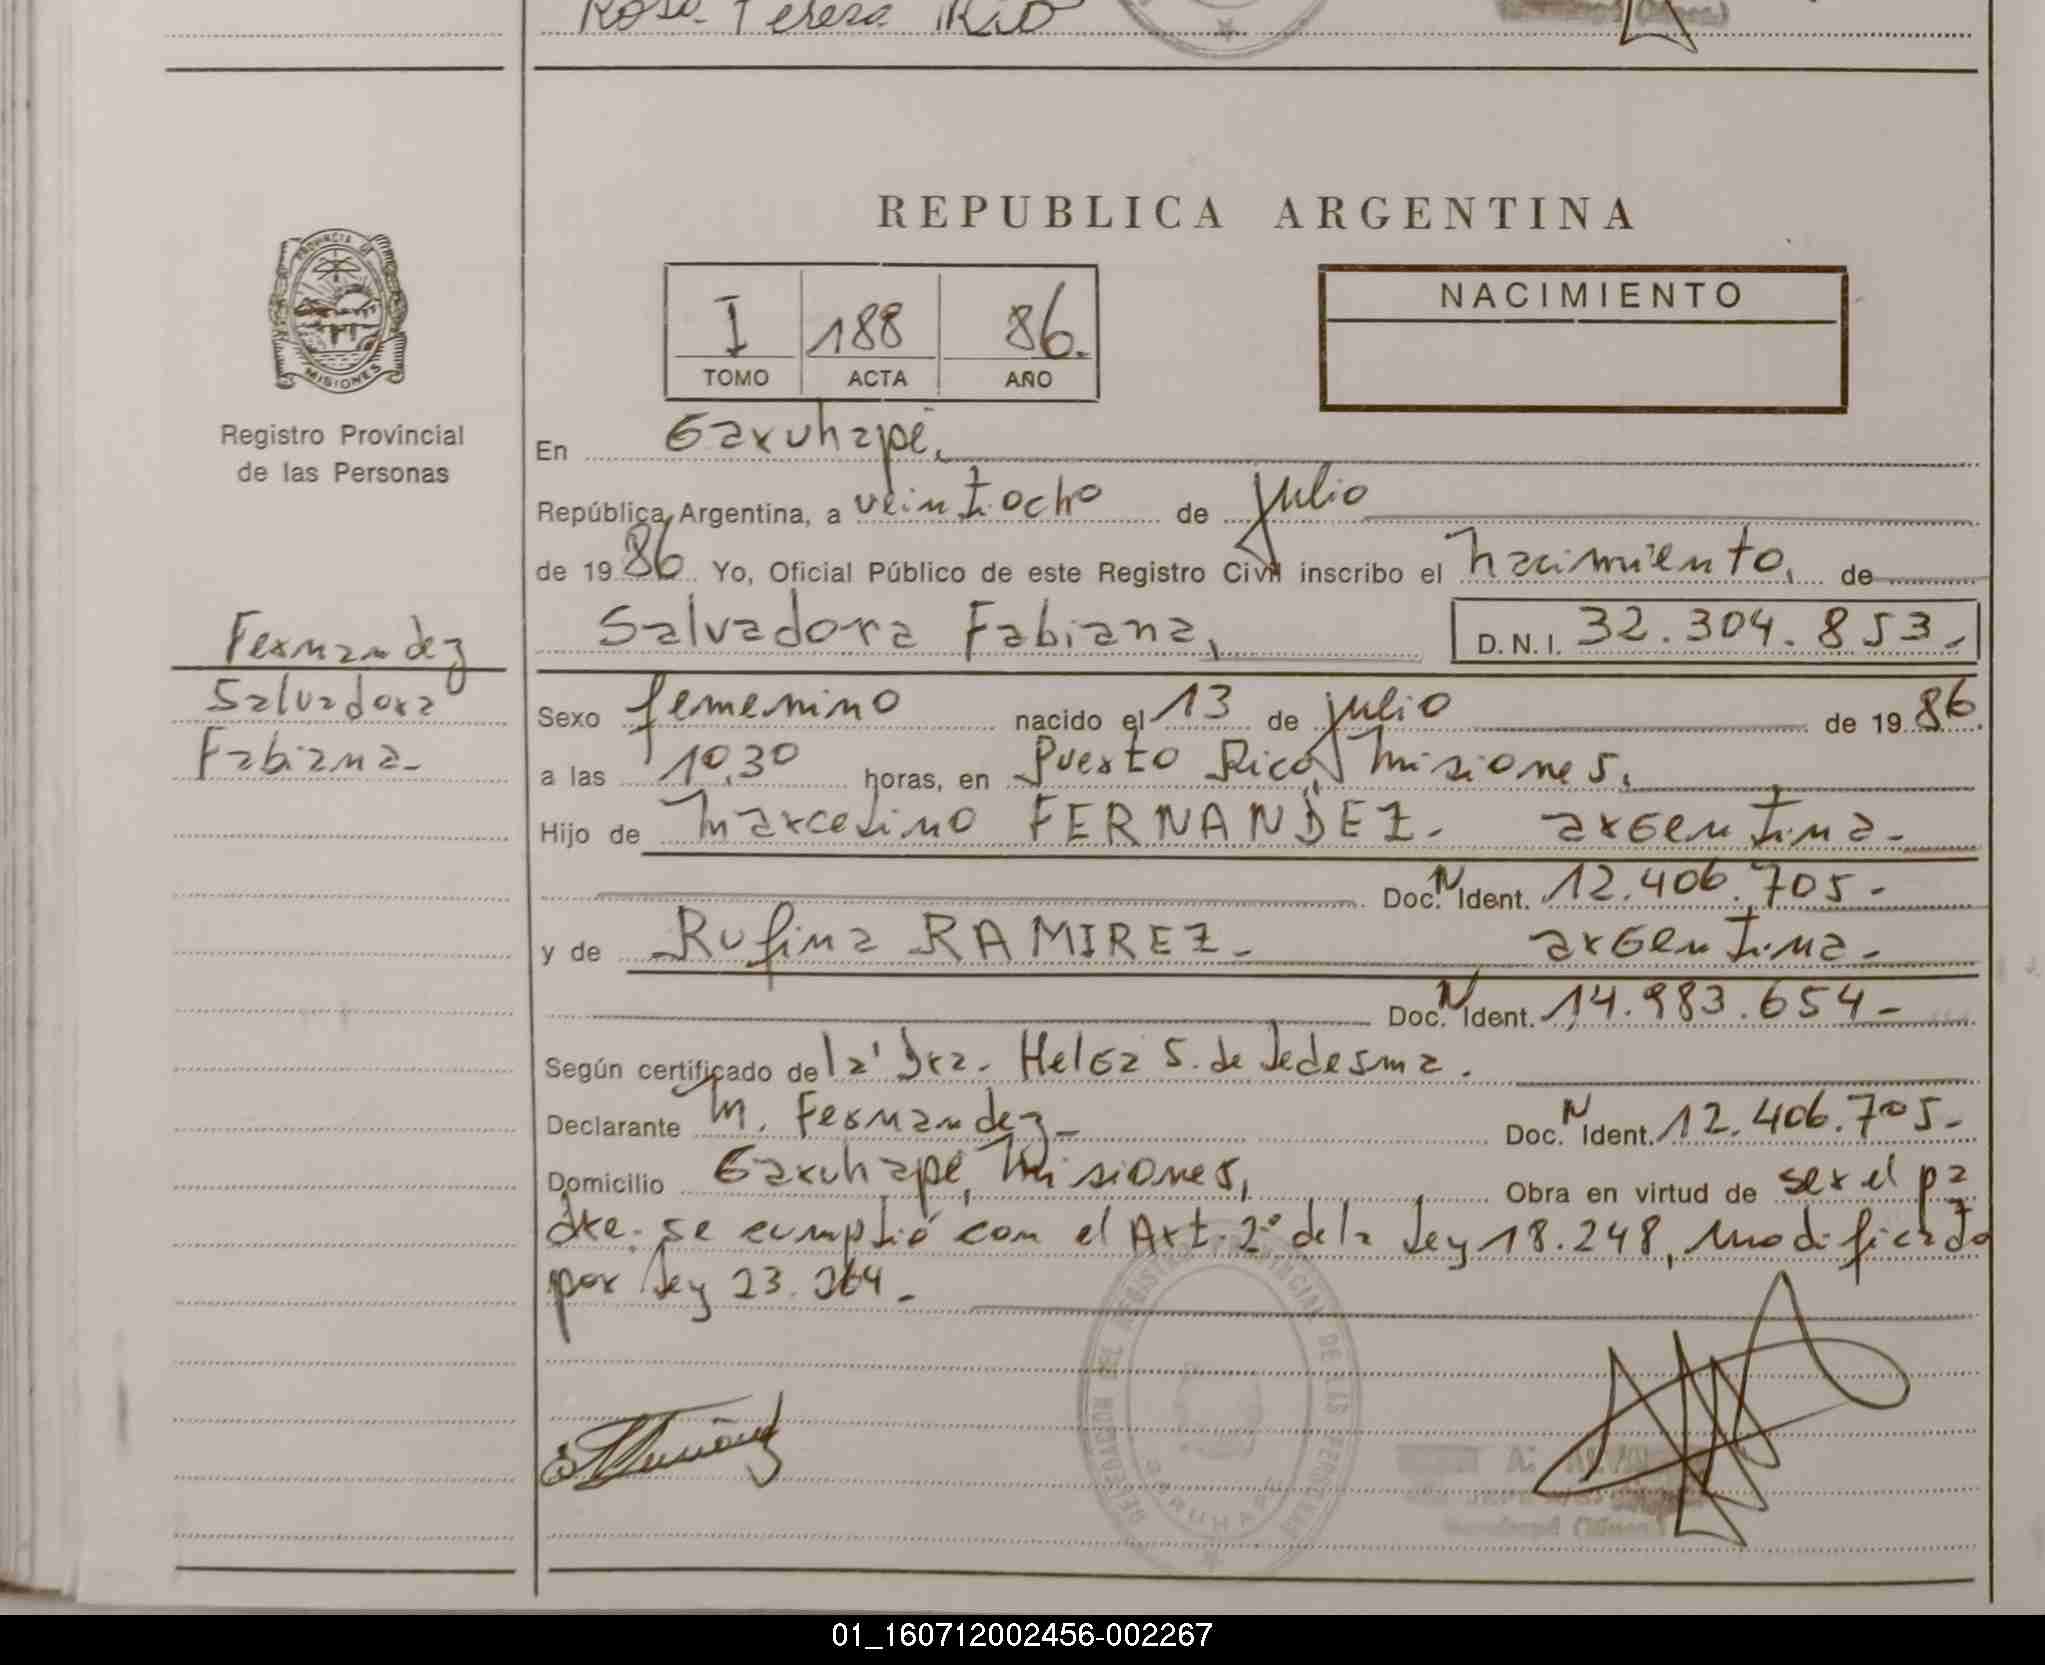 Rosa Teresa
REPUBLICA ARGENTINA
PROVINCIA DE
MISIONES
I 188 86.
TOMO ACTA AÑO
NACIMIENTO
Registro Provincial
de las Personas
En Garuhapé,
República Argentina, a veintiocho de julio
de 1986 Yo, Oficial Público de este Registro Civil inscribo el nacimiento, de
Salvadora Fabiana, D.N.I. 32.304.853.-
Fernandez
Salvadora
Fabiana-
Sexo femenino nacido el 13 de julio de 1986.
a las 10,30 horas, en Puerto Rico, Misiones,
Hijo de Marcelino FERNANDEZ- argentina-
Doc. N Ident. 12.406.705-
y de Rufina RAMIREZ- argentina-
Doc. N Ident. 14.983.654-
Según certificado de la Dra. Helga S. de Ledesma.
Declarante M. Fernandez- Doc. N Ident. 12.406.705-
Domicilio Garuhapé, Misiones, Obra en virtud de ser el pa
dre. se cumplió con el Art. 2° de la Ley 18.248, modificado
por Ley 23.264-
DEL REGISTRO PROVINCIAL DE LAS PERSONAS
GARUHAPE
01_160712002456-002267